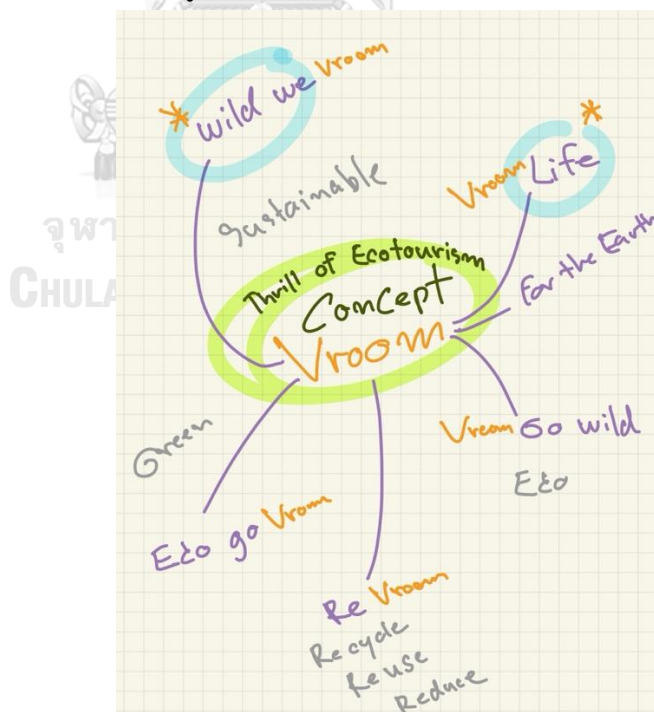 * wild we Vroom
*
Vroom Life
Sustainable
จุฬา
CHULA
Thrill of Ecotourism
Concept
Vroom
For the Earth
Green
Vroom Go wild
Eco
Eco go Vroom
Re Vroom
Recycle
Reuse
Reduce